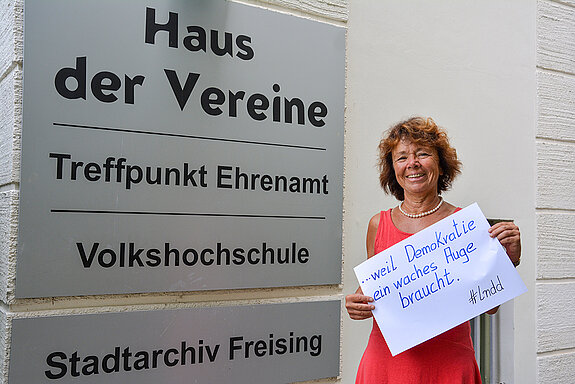 Haus
der Vereine
Treffpunkt Ehrenamt
Volkshochschule
Stadtarchiv Freising
...weil Demokratie
ein waches Auge
braucht.
#lmdd